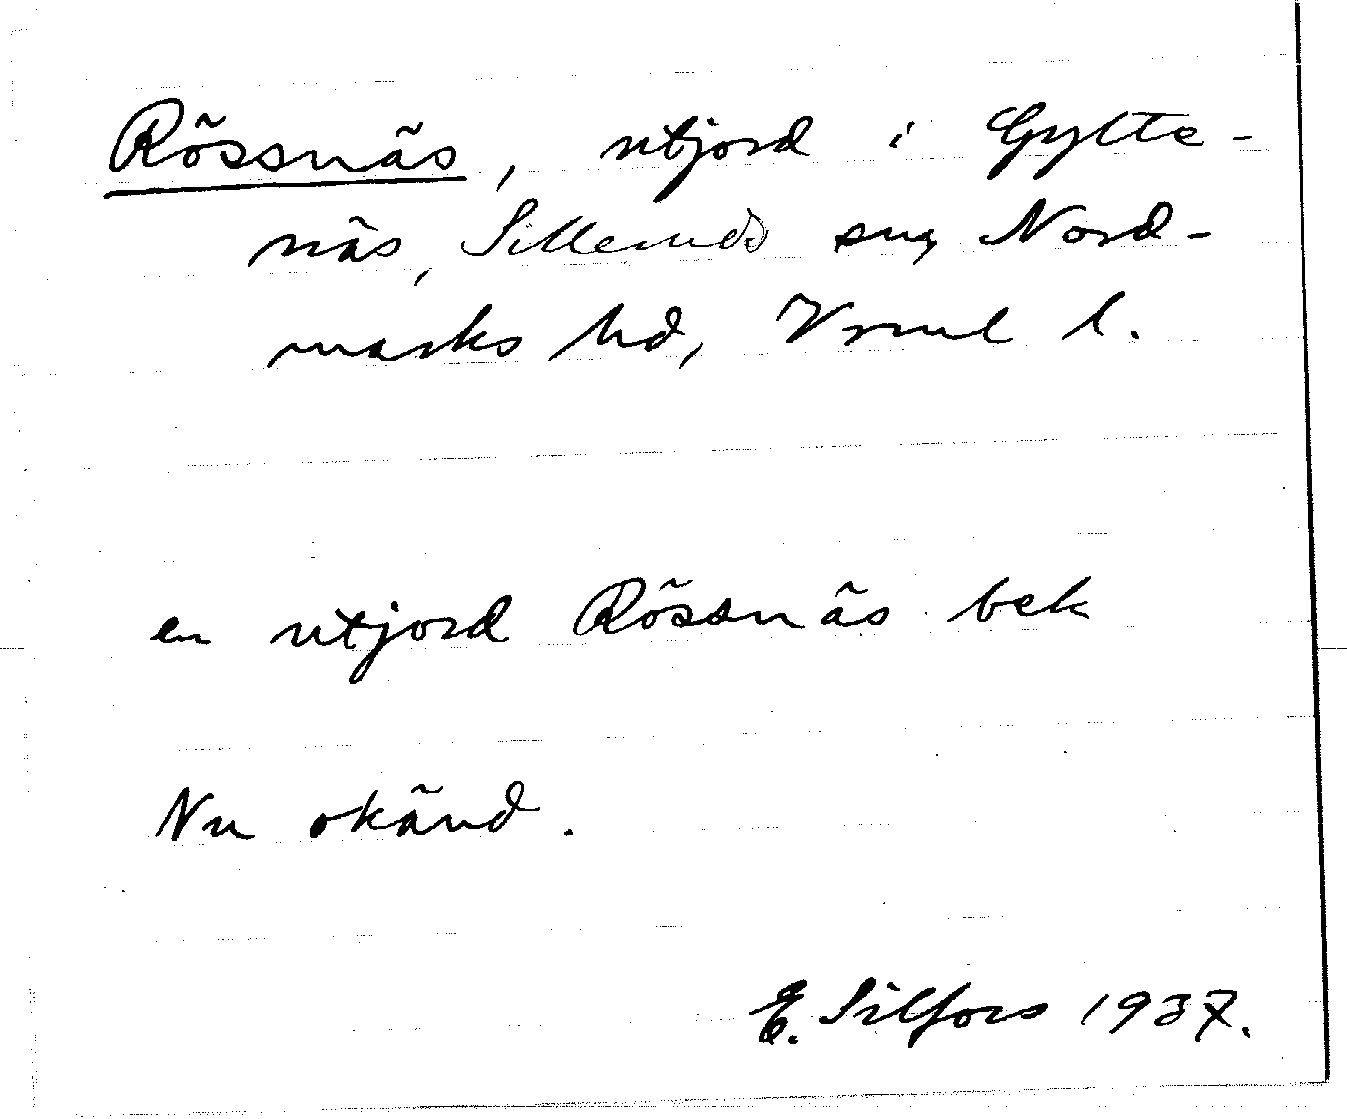 Rössnäs, utjord i Gylte-
näs, Silleruds sn, Nord-
marks hd, Vrml l.
en utjord Rössnäs bek
Nu okänd.
E. Silfors 1937.